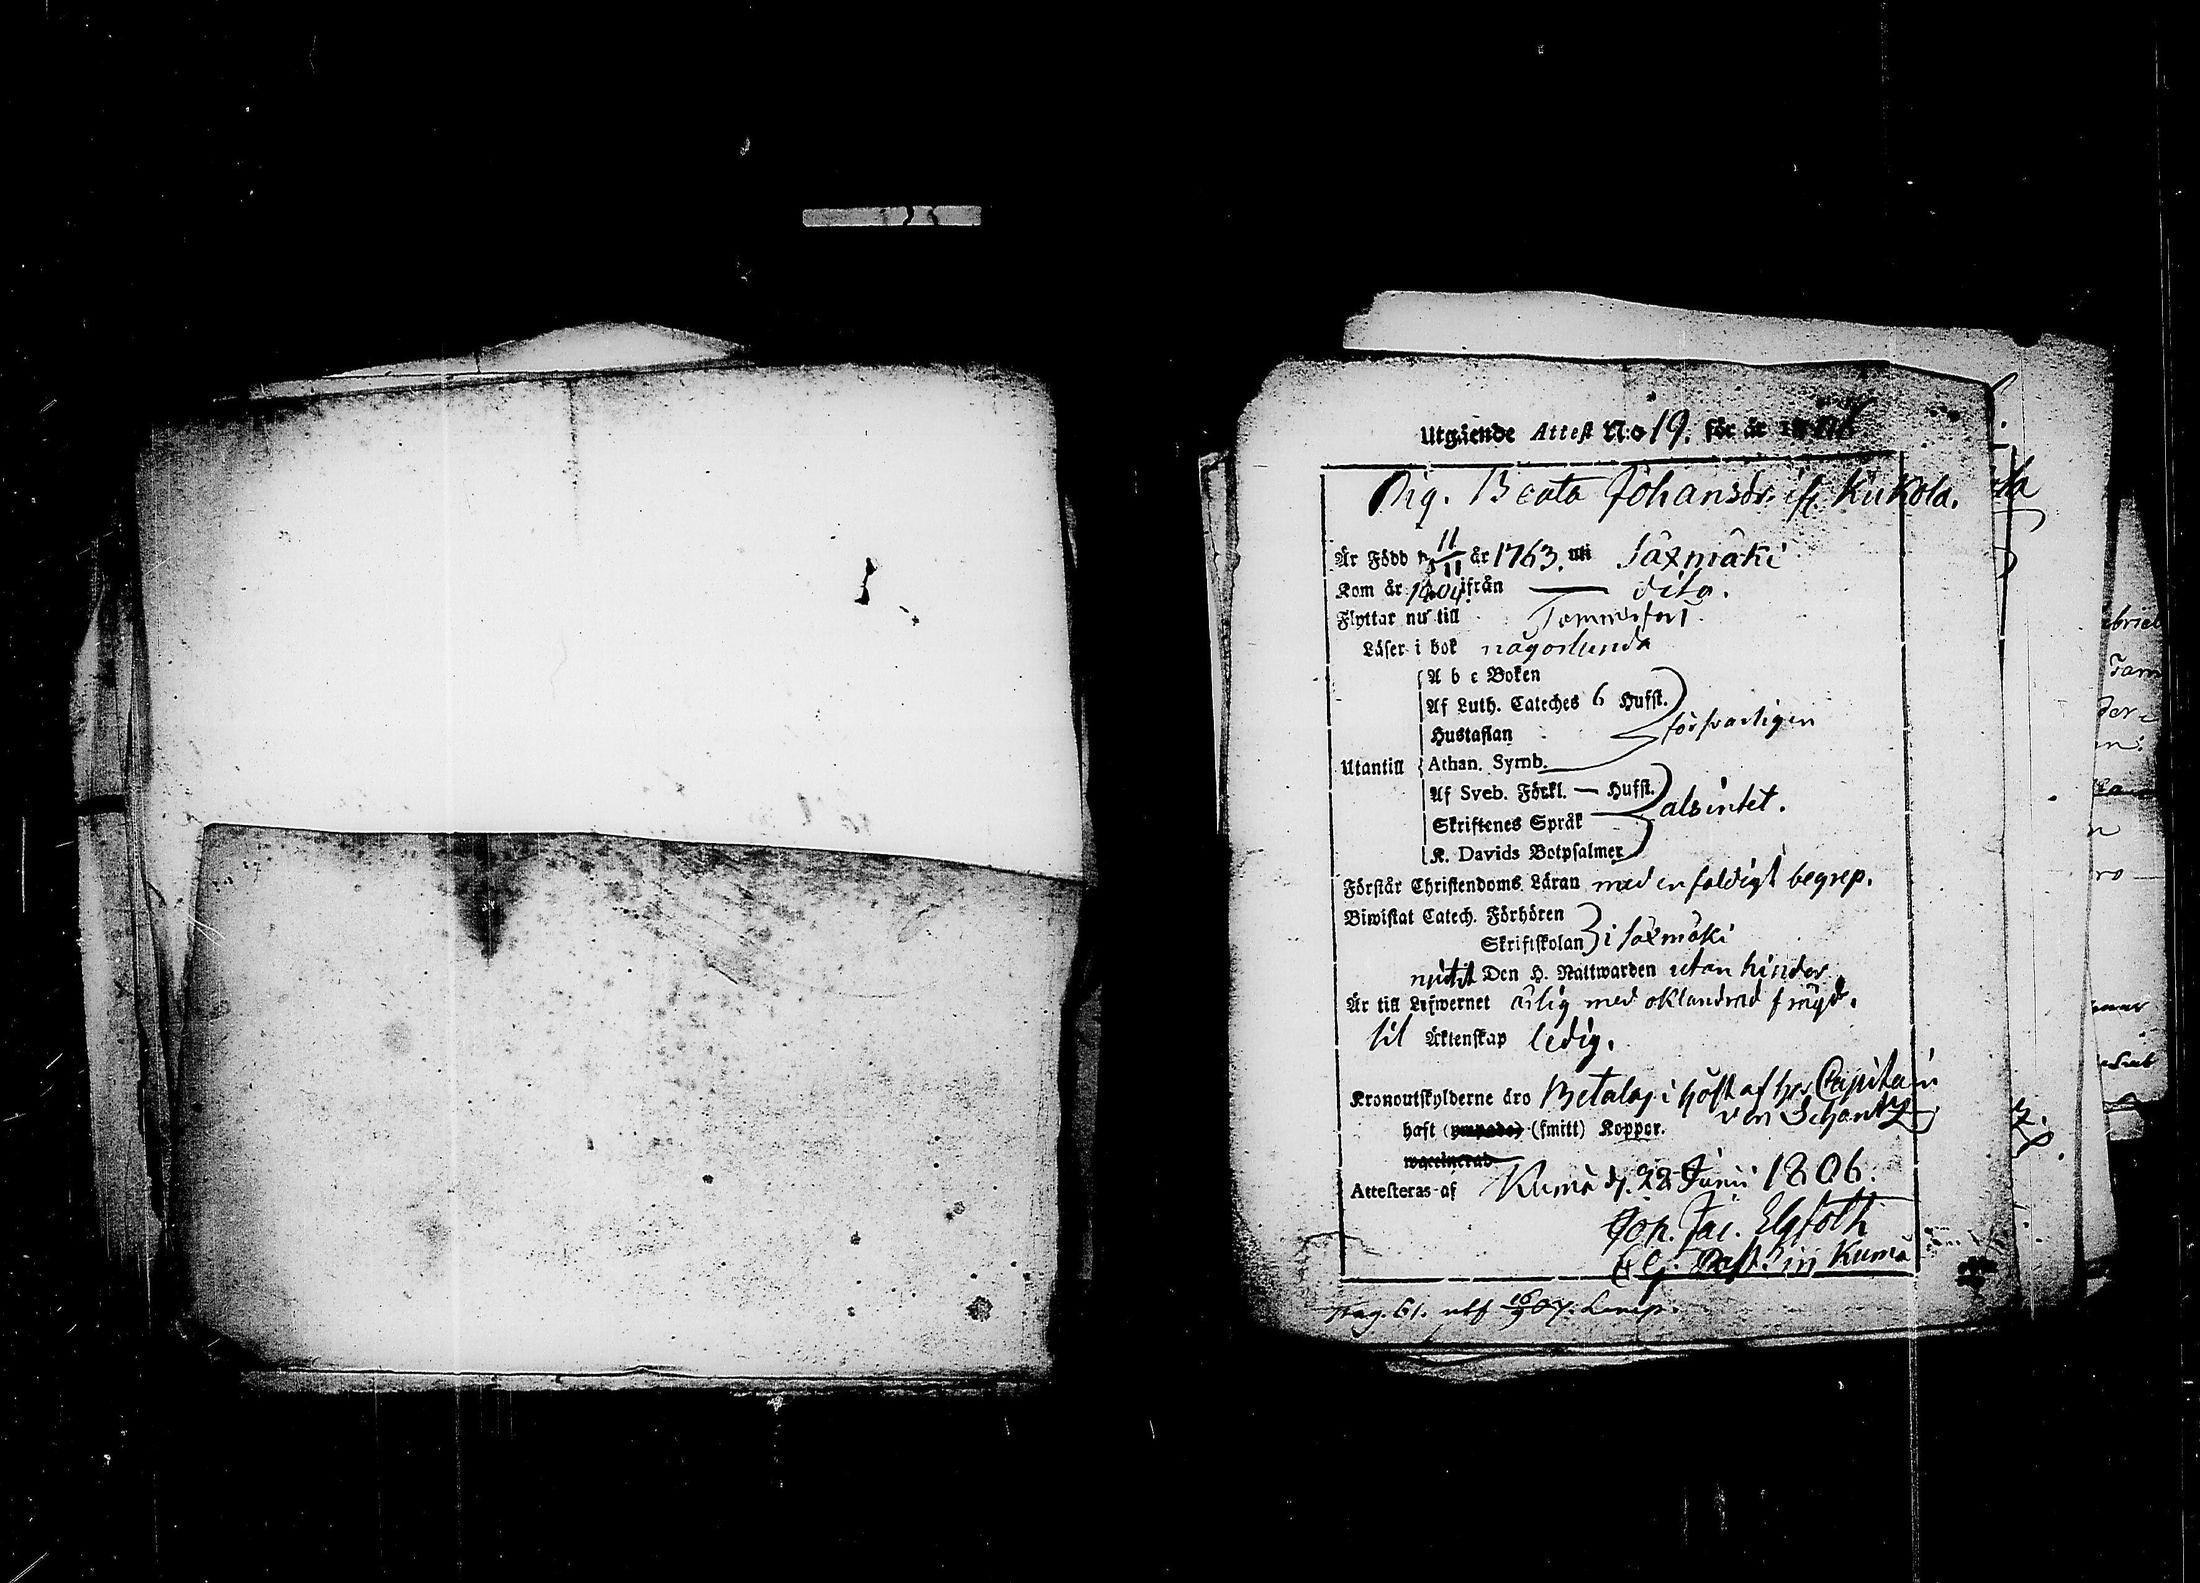 Utgående Attest N:o 19. för år 1806
Pig. Beata Johansdr. ifr. Kukola.
Är Född d. 11/11 år 1763. uti Säxmäki
Kom år 1804 ifrån — dito.
Flyttar nu till Tammerfors
Läser i bok någorlunda
A b c Boken
Af Luth. Cateches 6 Hufst.
Hustaflan försvarligen
Utantill Athan. Symb.
Af Sveb. Förkl. — Hufst.
Skriftenes Språk alsintet.
K. Davids Botpsalmer
Förstår Christendoms Läran med enfaldigt begrep.
Biwistat Catech. Förhören
Skriftskolan i Säxmäki
nyttjt Den H. Nattwarden utan hinder
Är till Lefwernet ärlig med oklandrad frägd.
til Äktenskap ledig.
Kronoutskylderne äro Betalas i höst af her Capitain
von Schantz
haft (ympade) (smitt) Koppor.
waccinerad
Attesteras af Kumå d. 22 Junii 1806.
Joh. Jac. Elgfoth
Past. in Kumå
pag. 61.